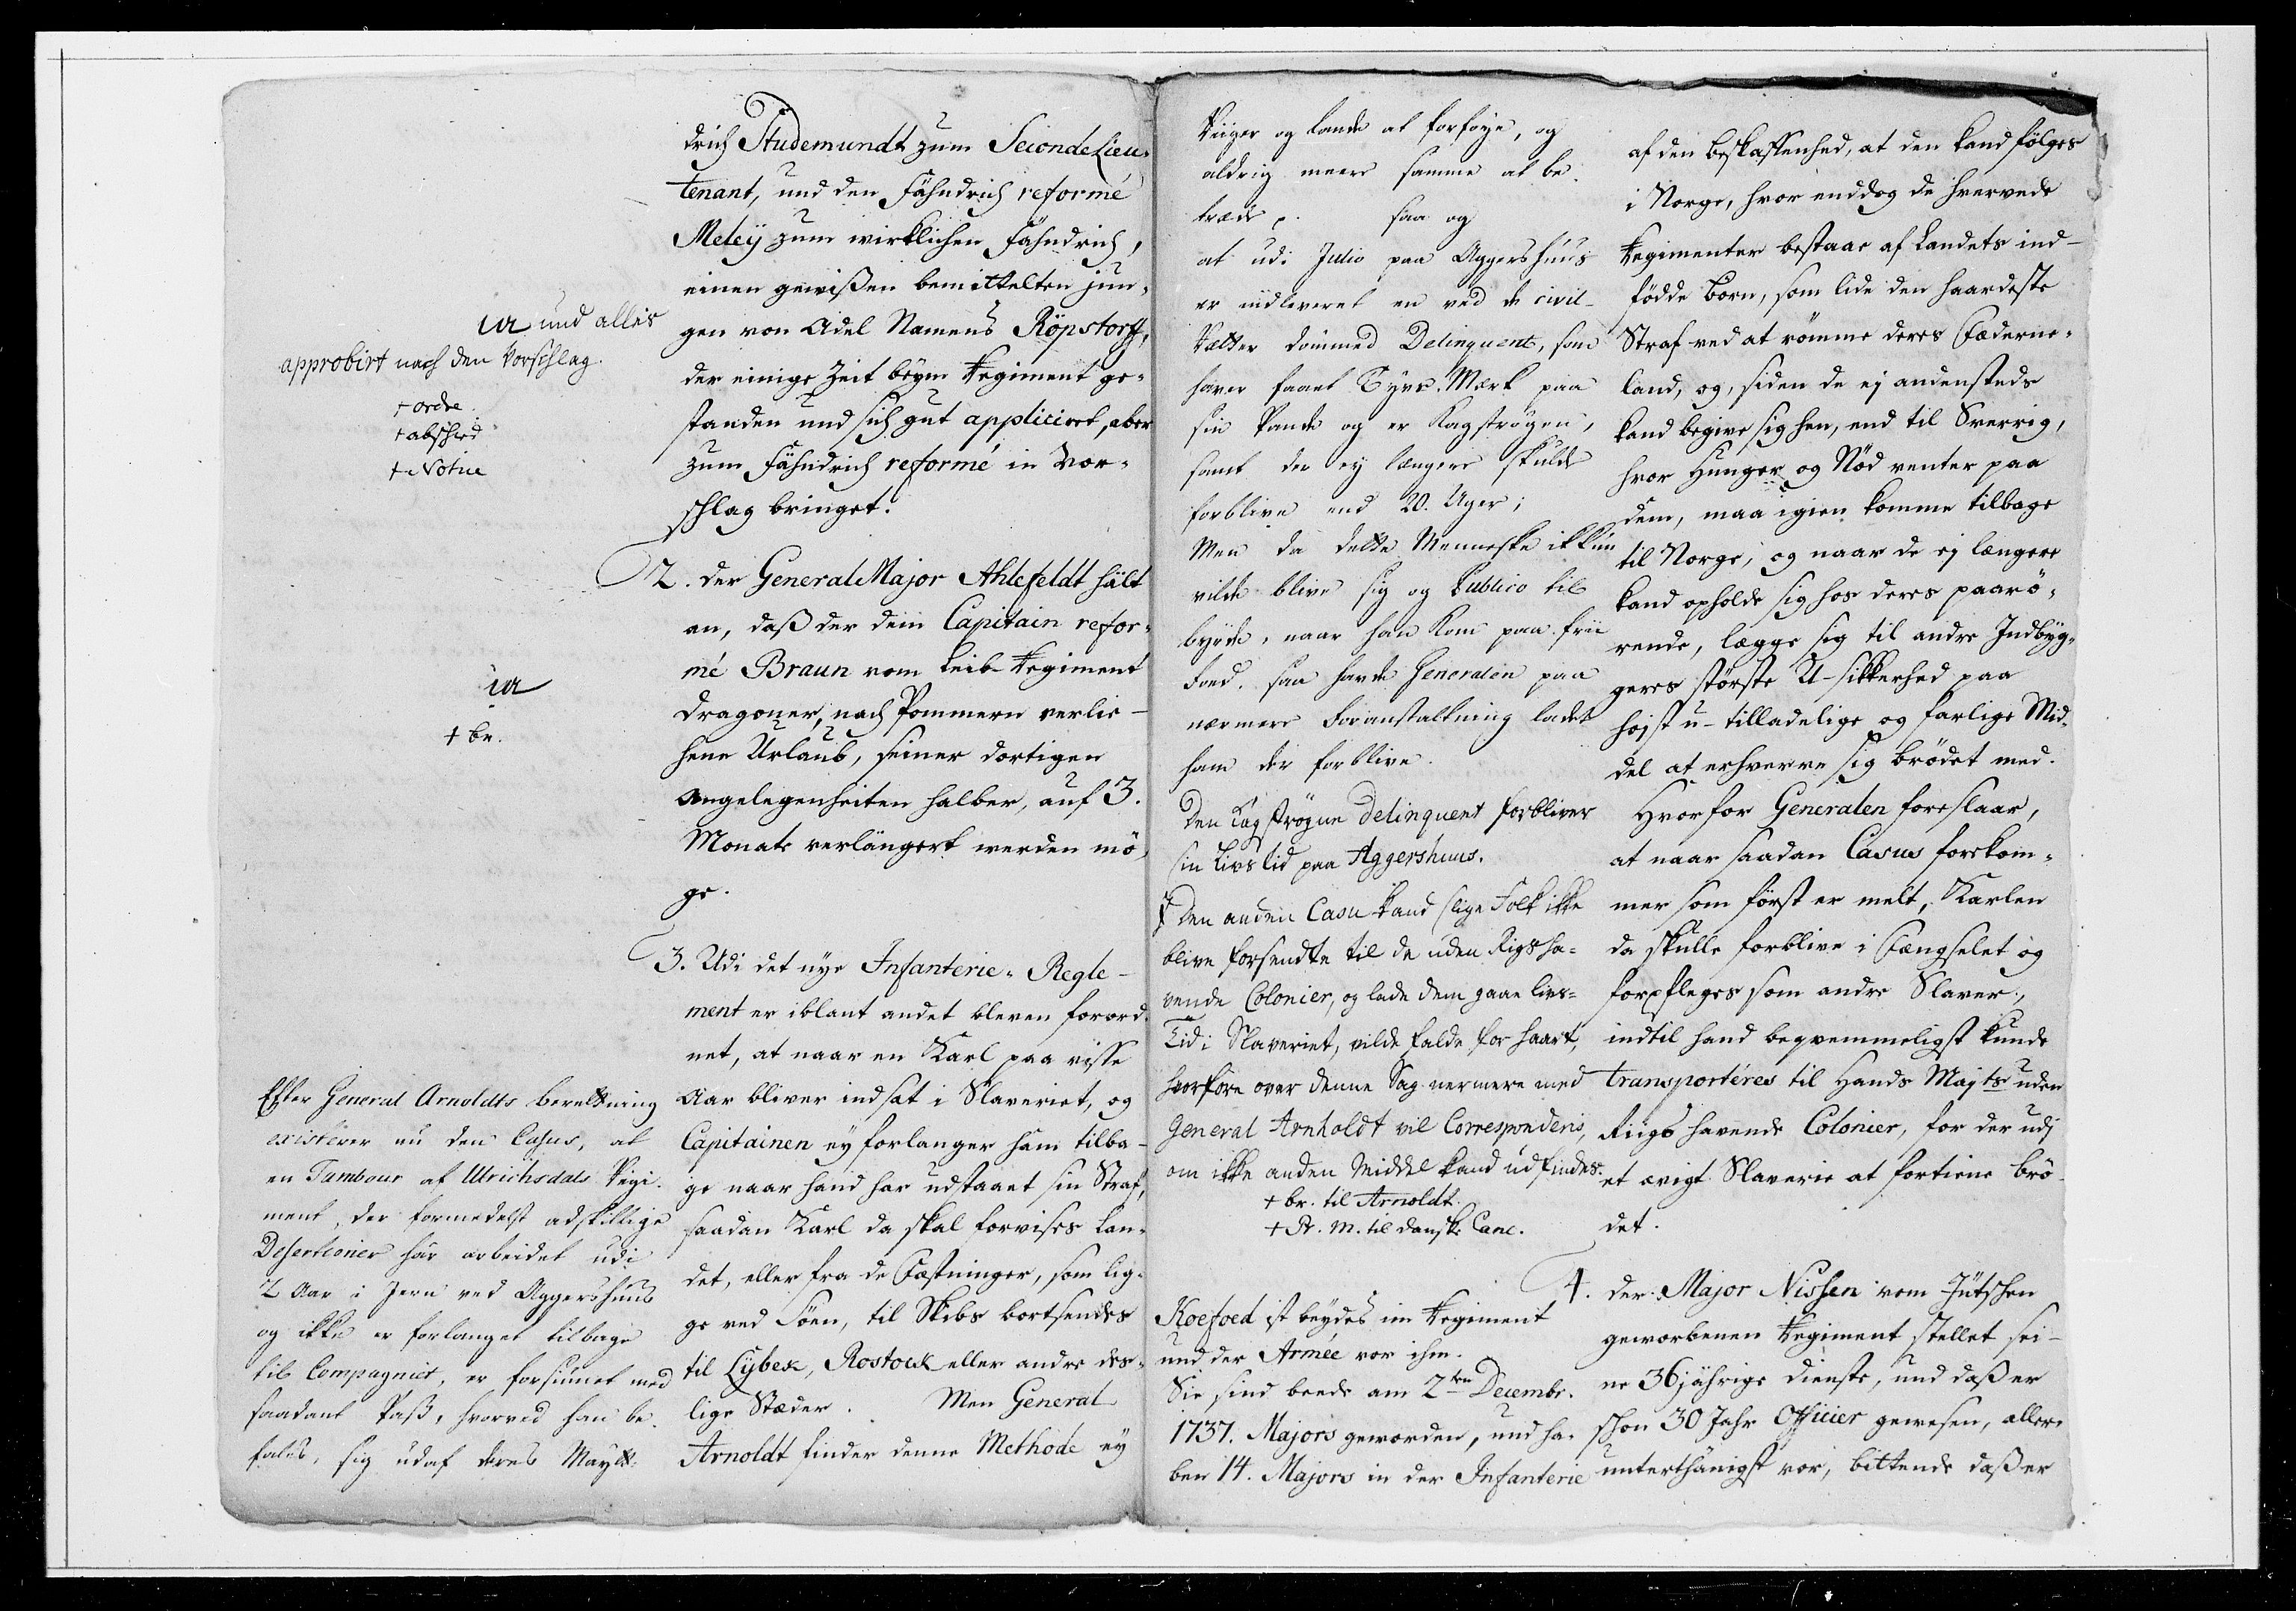 drich Studemundt zum Seconde Lieu-
tenant, und den Fähndrich reformé
Meleÿ zum wirklichen Fähndrich,
einen gewißen bemittelten jun-
gen von Adel Namens Röpstorff,
der einige Zeit beym Regiment ge-
standen und sich gut appliciret, aber
zum Fähndrich reformé in Vor-
schlag bringet.
ia und alles
approbirt nach den Vorschlag.
+ ordre
+ abschied
+ Notice
2. der General Major Ahlefeldt hält
an, daß der dem Capitain refor-
mé Braun vom Leib Regiment
Dragoner, nach Pommern verlie-
hene Urlaub, seiner dortigen
Angelegenheiten halber, auf 3.
Monate verlängert werden mö-
ge.
ia
+ br.
3. Udi det nye Infanterie-Regle-
ment er iblant andet bleven forord-
net, at naar en Karl paa visse
Aar bliver indsat i Slaveriet, og
Capitainen ey forlanger ham tilba-
ge naar hand har udstaaet sin Straf,
saadan Karl da skal forvises lan-
det, eller fra de Fæstninger, som lig-
ge ved Söen, til Skibs bortsendes
til Lybek, Rostock eller andre des-
lige Stæder. Men General
Arnoldt finder denne Methode ey
Efter General Arnoldts beretning
existerer nu den Casus, at
en Tambour af Ulrichsdals Regi-
ment, der formedelst adskillige
Desertioner har arbeidet udi
2 Aar i Jern ved Aggershuus
og ikke er forlanget tilbage
til Compagniet, er forsiunet med
saadant Pass, hvorved han be-
fales, sig udaf deres Maytt:
Riiger og Lande at forföye, og
aldrig meere samme at be-
træde p. saa og
at udi Julio paa Aggershuus
er indleveret en ved de civil-
Rætter dömmed Delinquent, som
haver faaet Tyve-Mærk paa
sin Pande og er Kagströgen,
samt der ey længere skulde
forblive end 20. Uger;
Men da dette Menneske ikkun
vilde blive sig og Publico til
byrde, naar han kom paa frii
Foed, saa havde Generalen paa
nærmere Foranstaltning ladet
ham der forblive.
Den Kagströgne Delinquent forbliver
sin Livs tid paa Aggershuus.
I den anden Casu kand slige Folk ikke
blive forsendte til de uden Rigs ha-
vende Colonier, og lade dem gaae livs-
Tid i Slaveriet, vilde falde for haart,
hvorfore over denne Sag nermere med
General Arnholdt vil Corresponderis,
om ikke anden Middel kand udfindes.
+ br. til Arnoldt.
+ P. M. til danske Canc.
af den beskaffenhed, at den kand fölges
i Norge, hvor enddog de hvervede
Regimenter bestaar af Landets ind-
födde Börn, som lide den haardeste
Straf ved at römme deres Fæderne-
land, og, siden de ej andensteds
kand begive sig hen, end til Sverrig,
hvor Hunger og Nöd venter paa
dem, maa igien komme tilbage
til Norge, og naar de ej længere
kand opholde sig hos deres paarö-
rende, lægge sig til andre Indbyg-
geres störste U-sikkerhed paa
höjst u-tilladelige og farlige Mid-
del at erhverve sig brödet med.
Hvorfor Generalen foreslaar,
at naar saadan Casus forekom-
mer som först er melt, Karlen
da skulle forblive i Fængselet og
forpfleges som andre Slaver,
indtil hand beqvemmeligst kunde
transportéres til Hands Majts uden
Riigs havende Colonier, for der udj
et ævigt Slaverie at fortiene brö-
det.
4. der Major Nissen vom Jütschen
geworbenen Regiment stellet sei-
ne 36jährige Dienste, und daß er
schon 30 Jahr Officier gewesen, aller-
unterthänigst vor, bittende daß er
Koefoed ist beydes im Regiment
und der Armée vor ihm.
Sie sind beede am 2ten Decembr.
1737. Majors geworden, und ha-
ben 14. Majors in der Infanterie